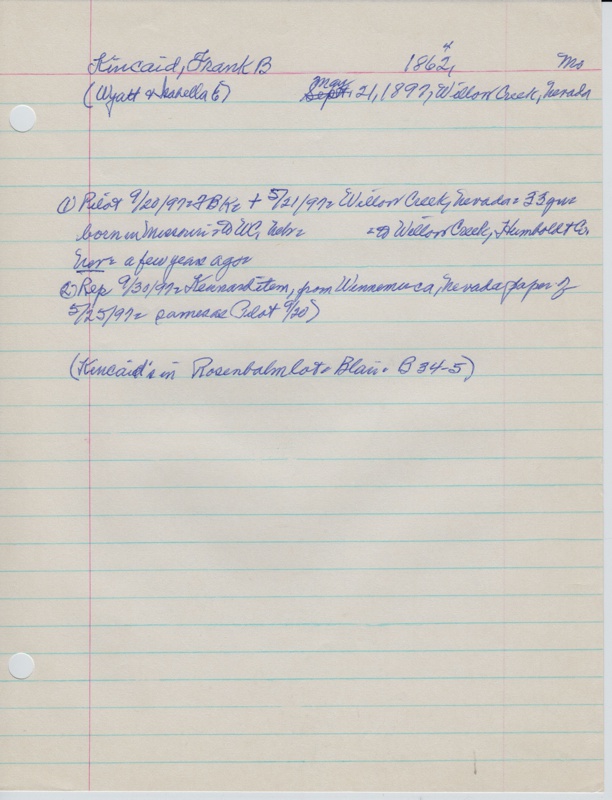 Kincaid, Frank B 1862, 4 Mo
(Wyatt & Isabella E) Sept. May 21, 1897, Willow Creek, Nevada
(1) Pilot 9/20/97= F B K= + 5/21/97= Willow Creek, Nevada= 33 yrs=
born in Missouri= to WC, Nebr= =to Willow Creek, Humboldt Co,
Nev= a few years ago=
(2) Rep 9/30/97= Kennard item, from Winnemucca, Nevada paper of
5/25/97= same as Pilot 9/20)
(Kincaid's in Rosenbalm lot= Blair= B 34-5)